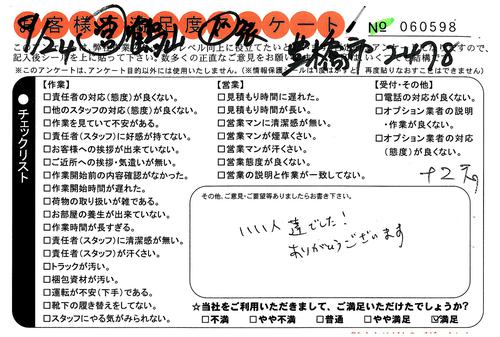 お客様満足度アンケート!
№ 060598
9/24
記入後シールを上に貼って下さい。数多くの正直なご意見をお願い
※このアンケートは、アンケート目的以外には使用いたしません。
チェックリスト
【作業】
□責任者の対応(態度)が良くない。
□他のスタッフの対応(態度)が良くない。
□作業を見ていて不安がある。
□責任者(スタッフ)に好感が持てない。
□お客様への挨拶が出来ていない。
□ご近所への挨拶・気遣いが無い。
□作業開始前の内容確認がなかった。
□作業開始時間が遅れた。
□荷物の取り扱いが雑である。
□お部屋の養生が出来ていない。
□作業時間が長すぎる。
□責任者(スタッフ)に清潔感が無い。
□責任者(スタッフ)が汗くさい。
□トラックが汚い。
□梱包資材が汚い。
□運転が不安(下手)である。
□靴下の履き替えをしてない。
□スタッフにやる気がみられない。
【営業】
□見積もり時間に遅れた。
□見積もり時間が長い。
□営業マンに清潔感が無い。
□営業マンが煙草くさい。
□営業マンが汗くさい。
□営業態度が良くない。
□営業の説明と作業が一致してない。
【受付・その他】
□電話の対応が良くない。
□オプション業者の説明
・作業が良くない。
□オプション業者の対応
(態度)が良くない。
その他、ご意見・ご要望等ありましたらお書き下さい。
いい人達でした!
ありがとうございます
☆当社をご利用いただきまして、ご満足いただけたでしょうか?
□不満 □やや不満 □普通 □やや満足 ☑満足